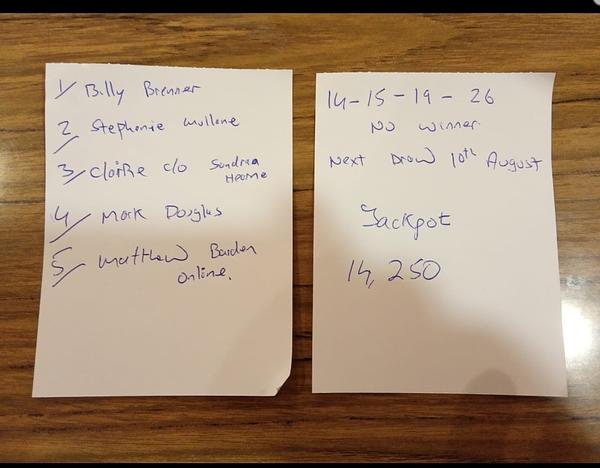 1/ Billy Brenner
2/ Stephanie Mullane
3/ Claire c/o Sandra
Hearne
4/ Mark Douglas
5/ Matthew
Online.
14-15-19-26
No winner.
Next Draw 10th August
Jackpot
14,250